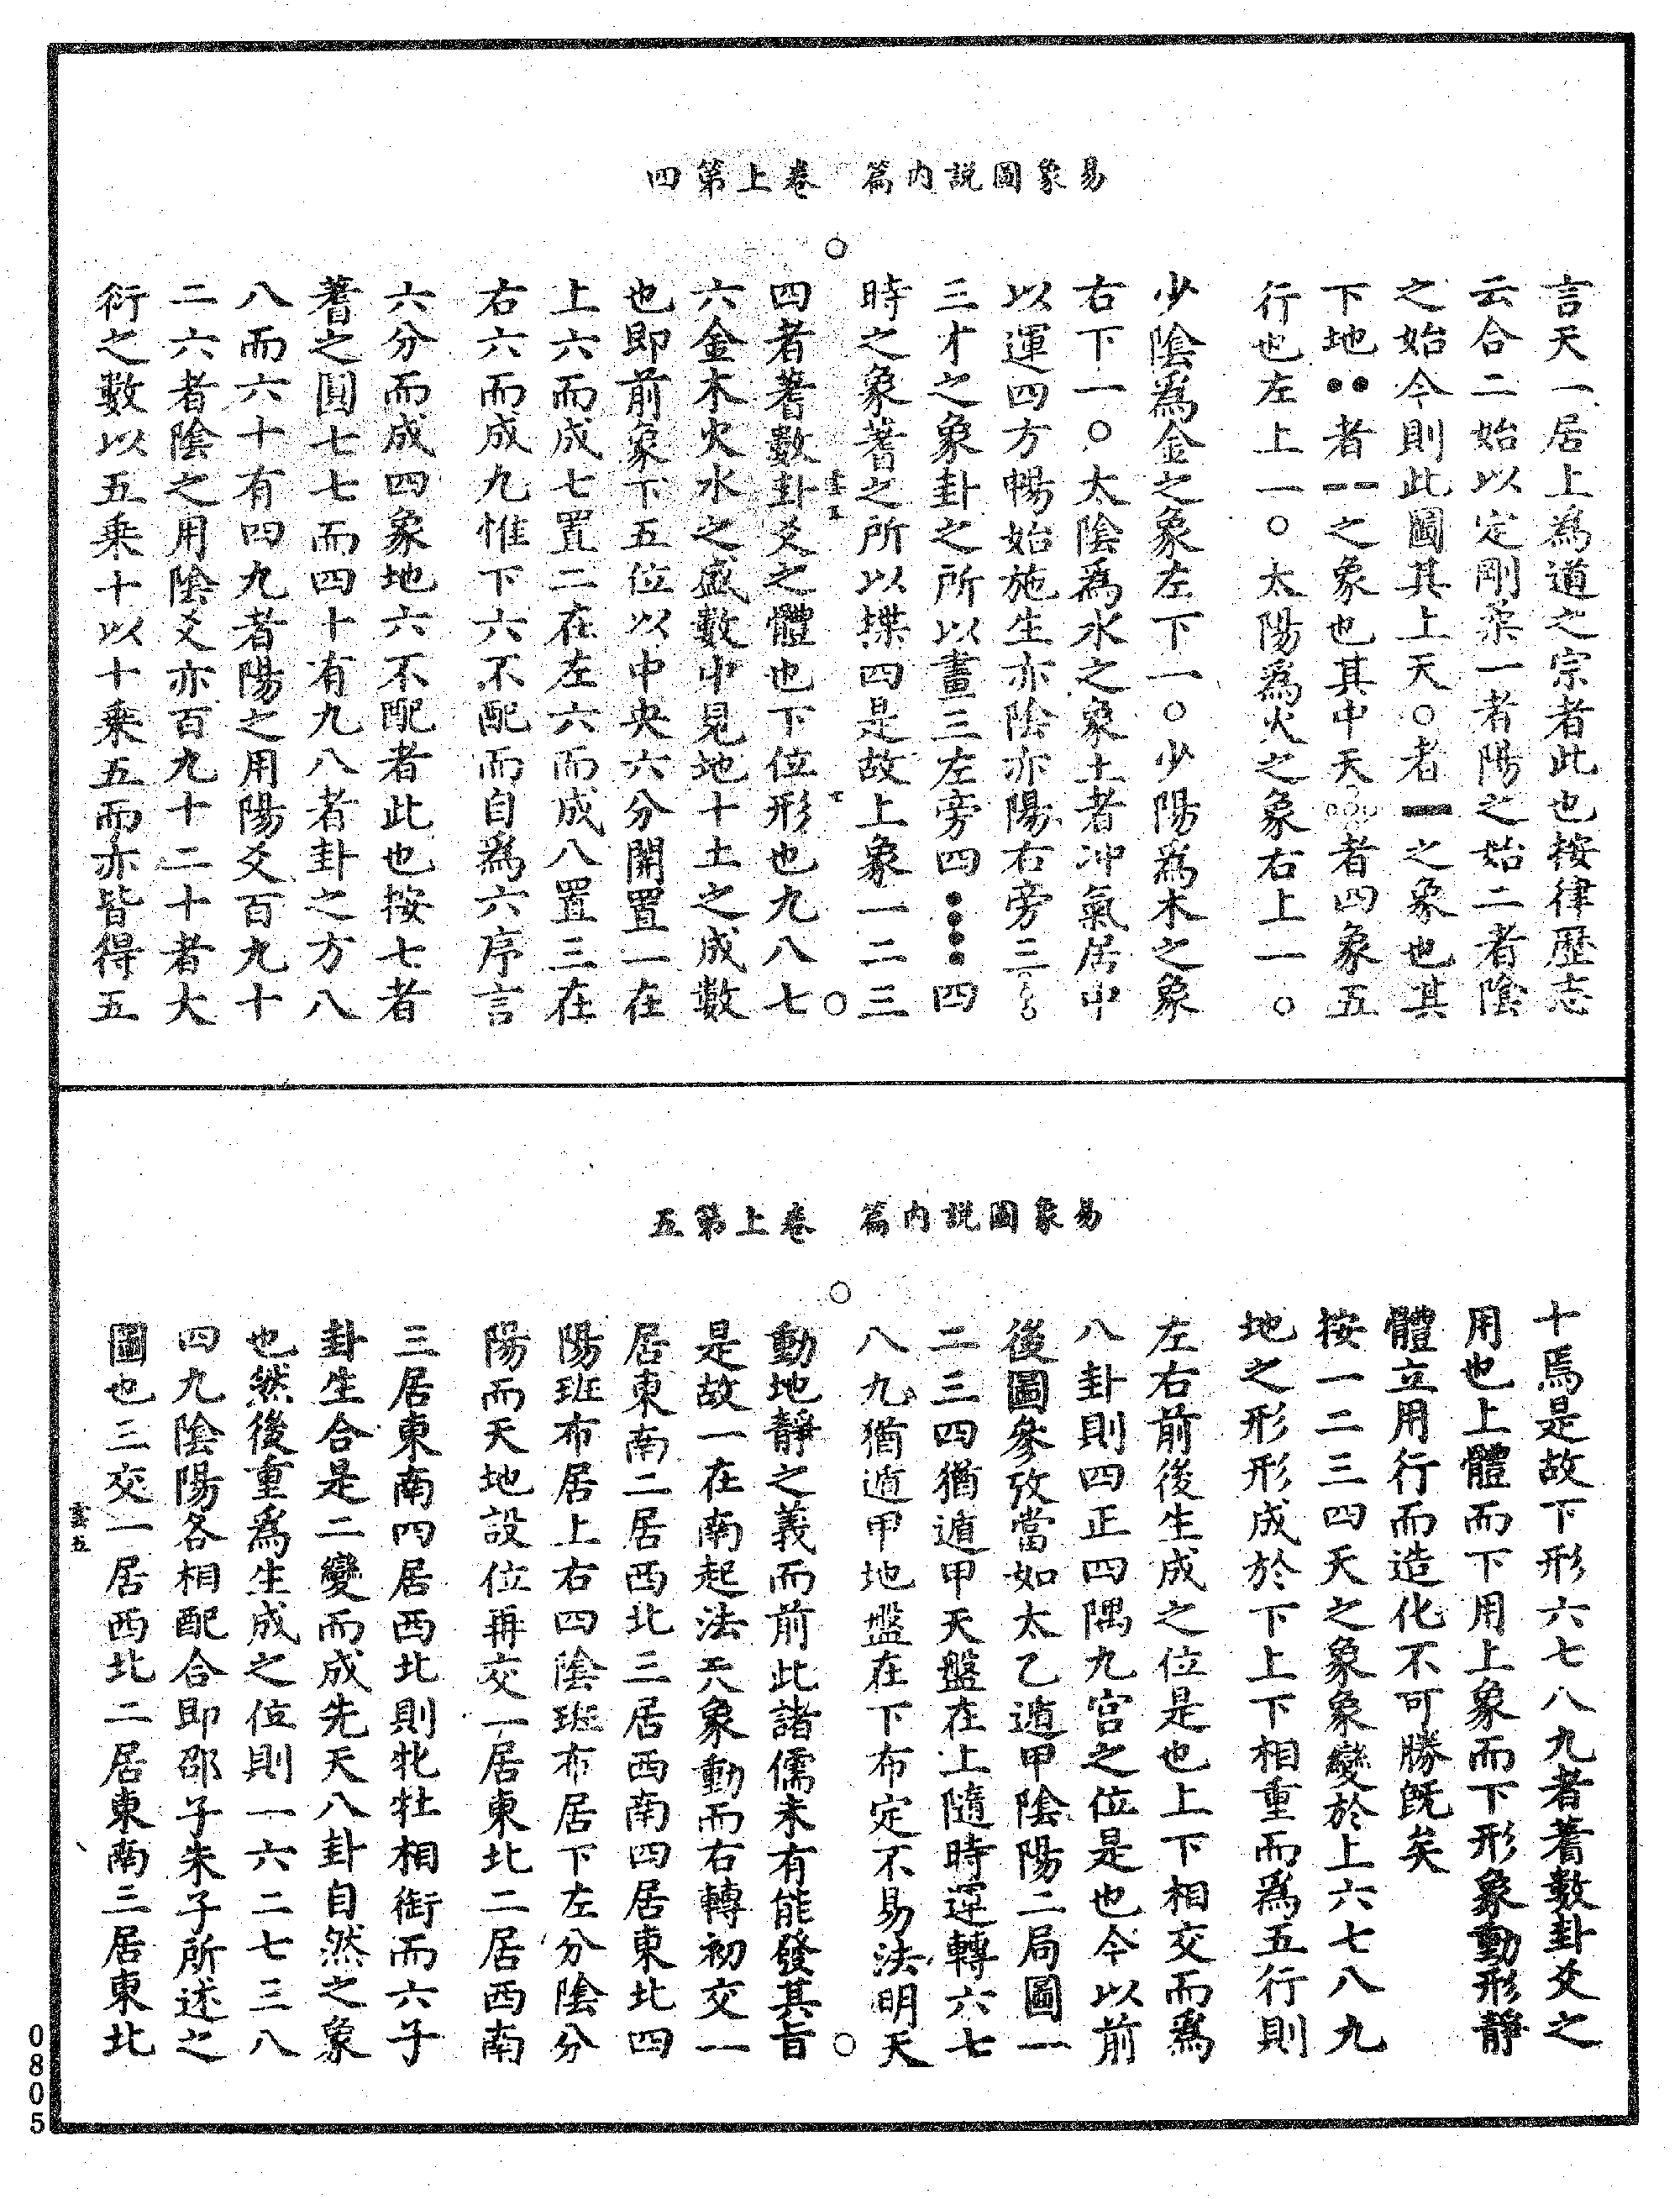 易象圖説内篇　卷上第四
言天一居上爲道之宗者此也按律歷志
云合二始以定剛柔一者陽之始二者陰
之始今則此圖其上天○者━之象也其
下地●●者╍之象也其中天者四象五
行也左上一○太陽爲火之象右上一○
少陰爲金之象左下一○少陽爲木之象
右下一○太陰爲水之象土者冲氣居中
以運四方暢始施生亦陰亦陽右旁三
三才之象卦之所以畫三左旁四●●●●四
時之象蓍之所以揲四是故上象一二三
四者蓍數卦爻之體也下位形也九八七
六金木火水之盛數中見地十土之成數
也即前象下五位以中央六分開置一在
上六而成七置二在左六而成八置三在
右六而成九惟下六不配而自爲六序言
六分而成四象地六不配者此也按七者
蓍之圓七七而四十有九八者卦之方八
八而六十有四九者陽之用陽爻百九十
二六者陰之用陰爻亦百九十二十者大
衍之數以五乘十以十乘五而亦皆得五
易象圖説内篇　卷上第五
十焉是故下形六七八九者蓍數卦爻之
用也上體而下用上象而下形象動形靜
體立用行而造化不可勝旣矣
按一二三四天之象象變於上六七八九
地之形形成於下上下相重而爲五行則
左右前後生成之位是也上下相交而爲
八卦則四正四隅九宫之位是也今以前
後圖參攷當如太乙遁甲陰陽二局圖一
二三四猶遁甲天盤在上隨時運轉六七
八九猶遁甲地盤在下布定不易法明天
動地靜之義而前此諸儒未有能發其旨
是故一在南起法天象動而右轉初交一
居東南二居西北三居西南四居東北四
陽班布居上右四陰班布居下左分陰分
陽而天地設位再交一居東北二居西南
三居東南四居西北則牝牡相銜而六子
卦生合是二變而成先天八卦自然之象
也然後重爲生成之位則一六二七三八
四九陰陽各相配合即邵子朱子所述之
圖也三交一居西北二居東南三居東北
雲五
0805